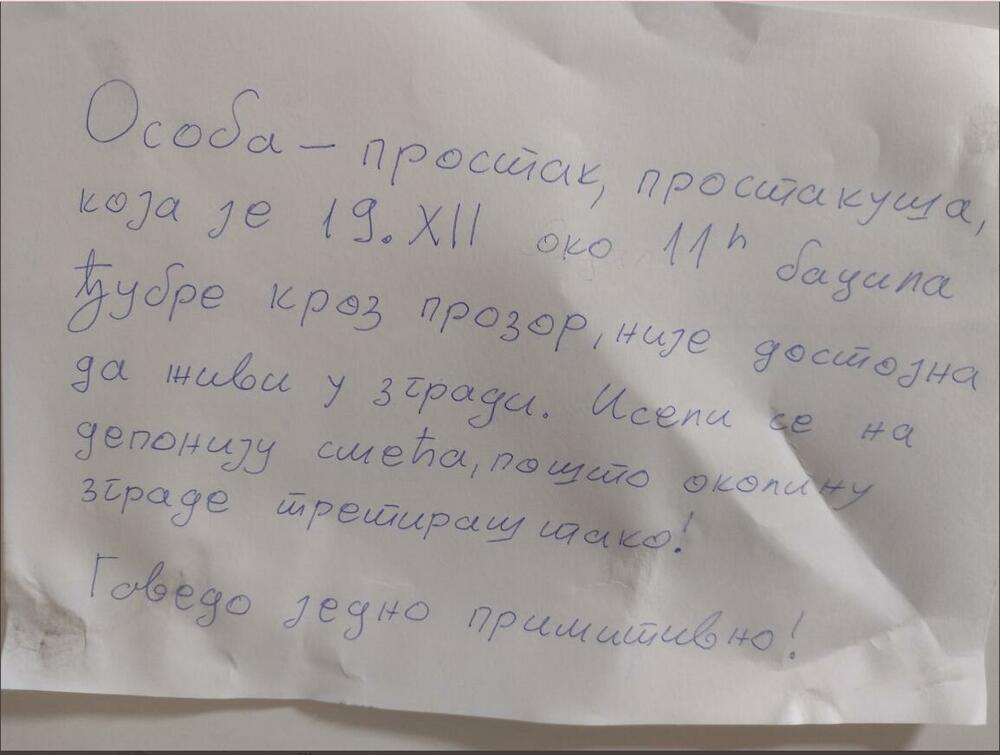 Особа – простак, простакуша,
која је 19. XII око 11h бацила
ђубре кроз прозор, није достојна
да живи у згради. Исели се на
депонију смећа, пошто околину
зграде третираш тако!
Говедо једно примитивно!